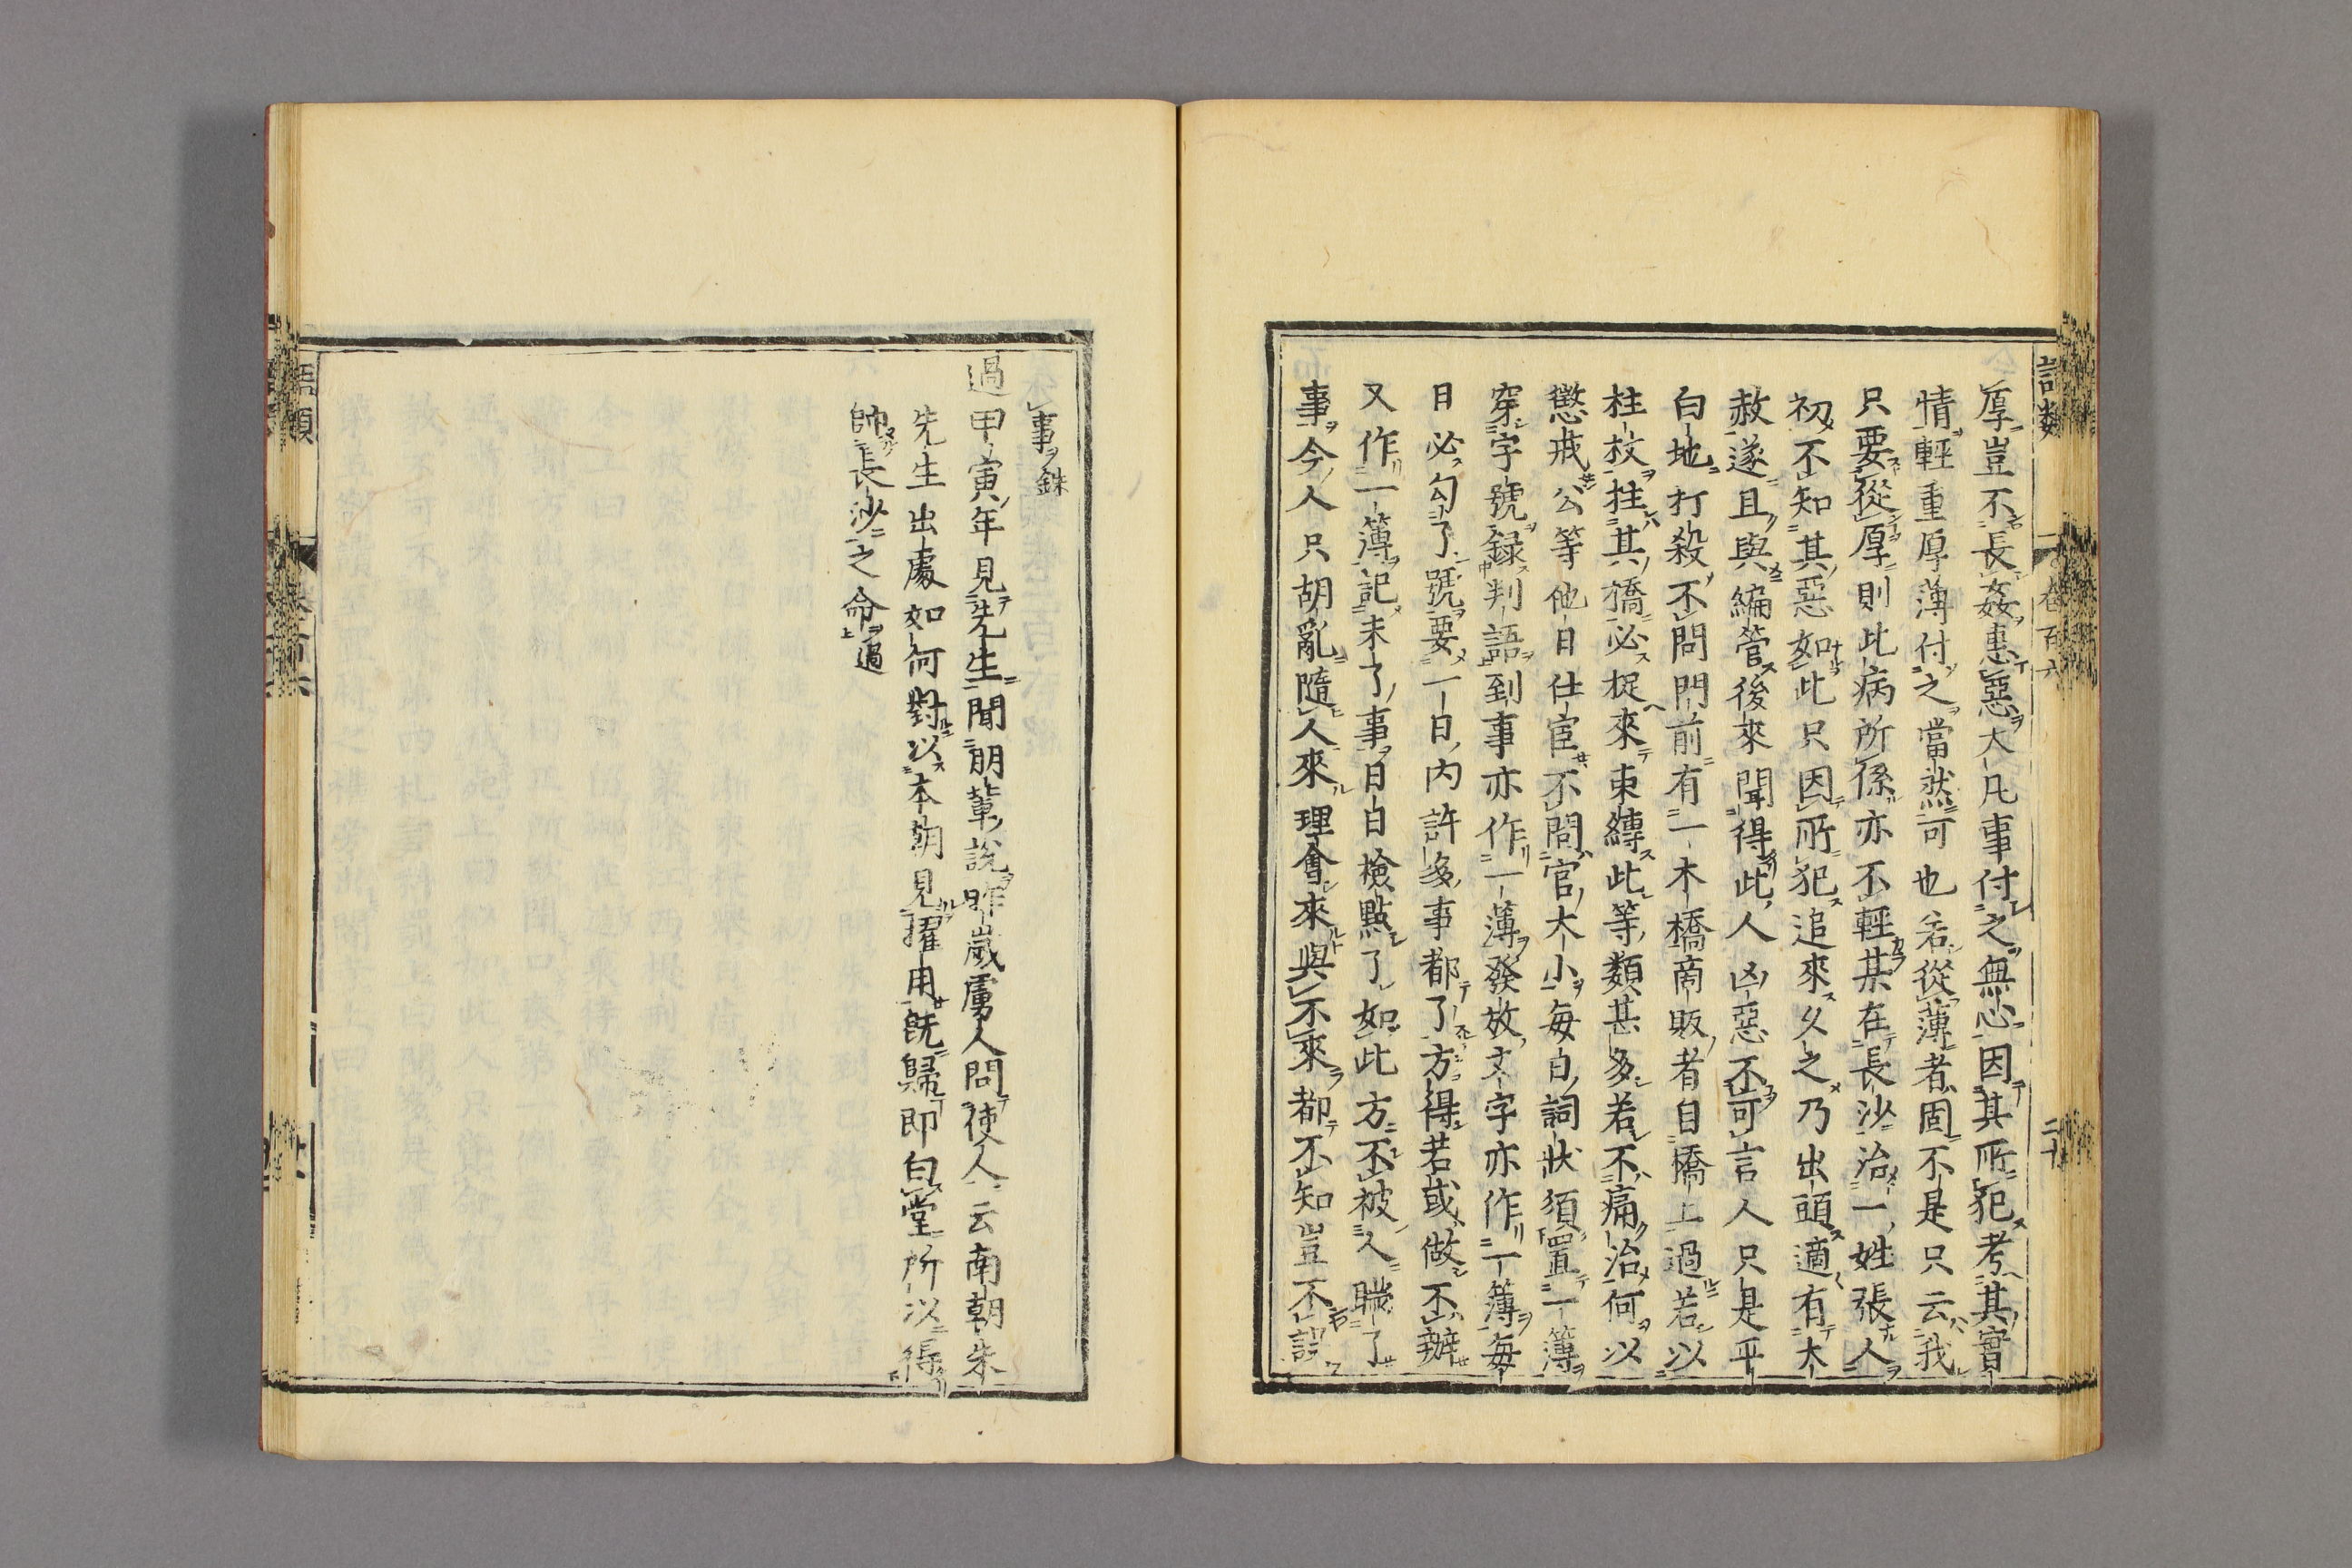 語類
卷百六
二十
厚豈不長姦惠惡大凡事付之無心因其所犯考其實
情輕重厚薄付之當然可也若從薄者固不是只云我
只要從厚則此病所係亦不輕某在長沙治一姓張人
初不知其惡如此只因所犯追來久之乃出頭適有大
赦遂且與編管後來聞得此人凶惡不可言人只是平
白地打殺不問門前有一木橋商販者自橋上過若以
柱杖拄其橋必捉來束縛此等類甚多若不痛治何以
懲戒公等他日仕宦不問官大小每日詞狀須置一簿
穿字號錄判語到事亦作一薄發放文字亦作一簿每
日必勾了號要一日內許多事都了方得若或做不辦
又作一簿記未了事日日檢點了如此方不被人瞞了
事今人只胡亂隨人來理會來與不來都不知豈不誤
事銖
過甲寅年見先生聞朋輩說昨歲虜人問使人云南朝朱
先生出處如何對以本朝見擢用既歸即白堂所以得
帥長沙之命過
語類